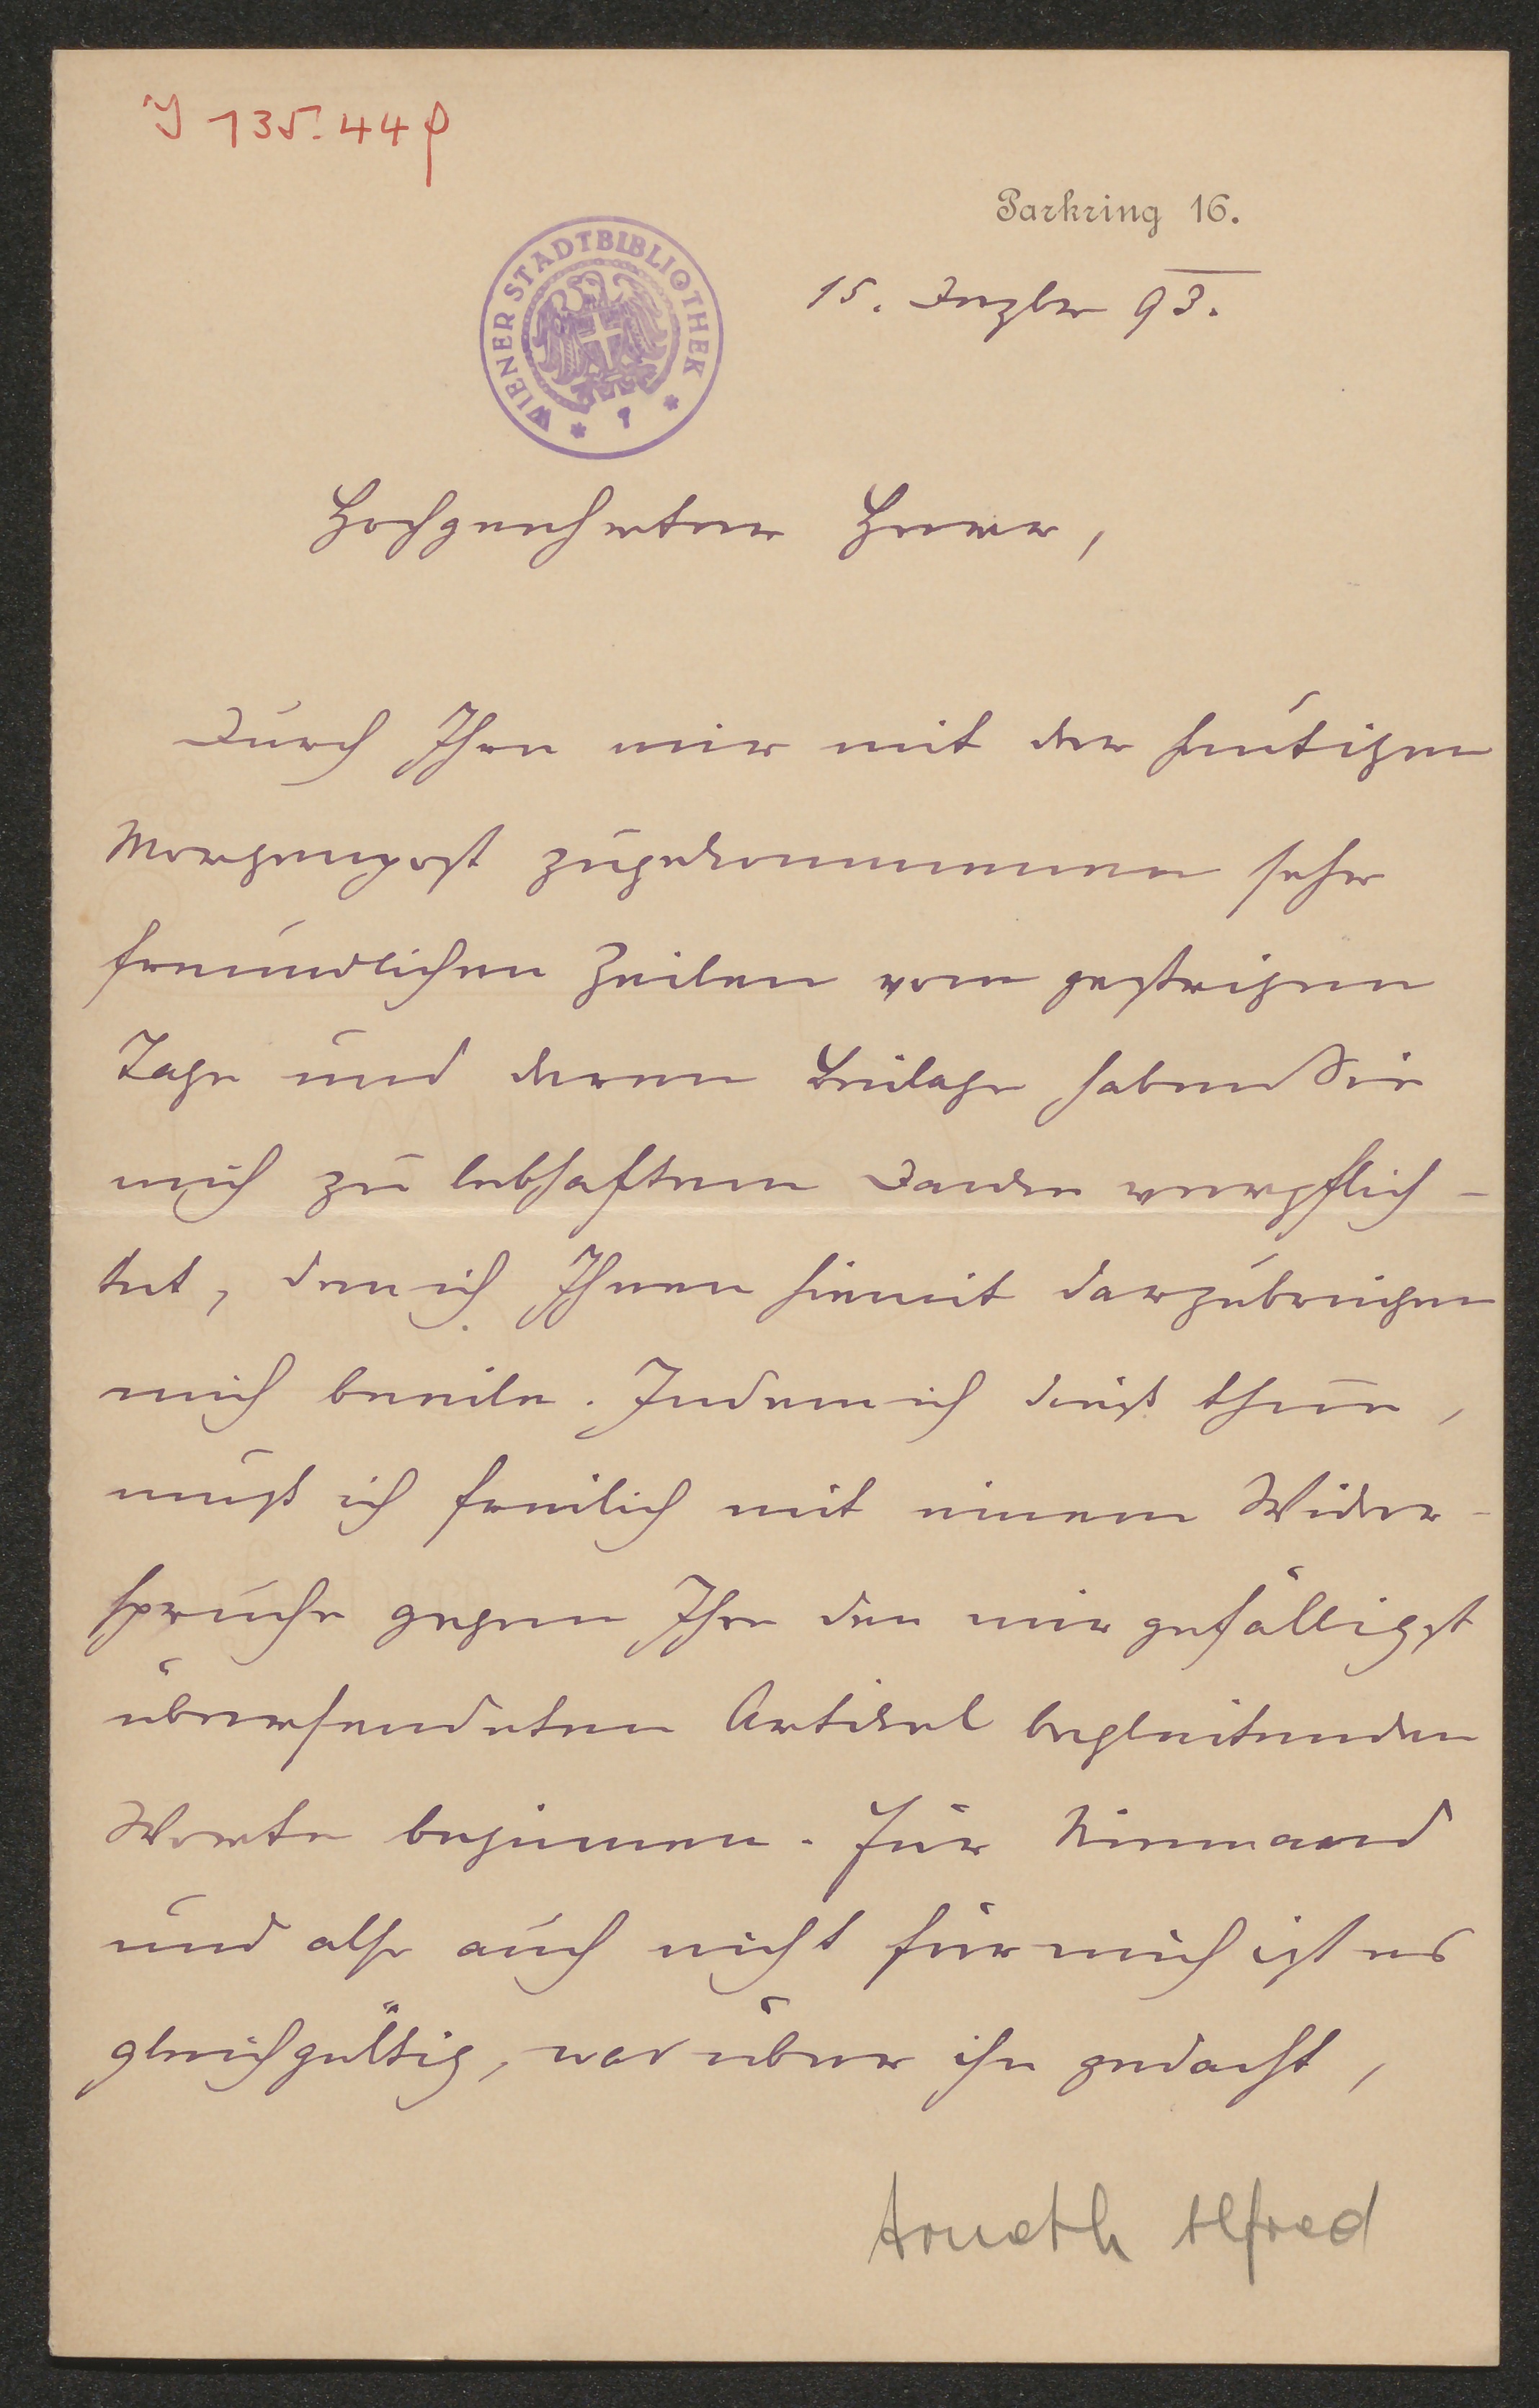 J 135.448
Parkring 16.
15. Dezber 93.
WIENER STADTBIBLIOTHEK
Hochgeehrter Herr,
Durch Ihre mir mit der heutigen
Morgenpost zugekommenen sehr
freundlichen Zeilen vom gestrigen
Tage und deren Beilage haben Sie
mich zu lebhaftem Danke verpflich-
tet, den ich Ihnen hiemit darzubringen
mich beeile. Indem ich dieß thue,
muß ich freilich mit einem Wider-
spruche gegen Ihre den mir gefälligst
übersendeten Artikel begleitenden
Worte beginnen. Für Niemand
und also auch nicht für mich ist es
gleichgültig, was über ihn gedacht,
Arneth Alfred